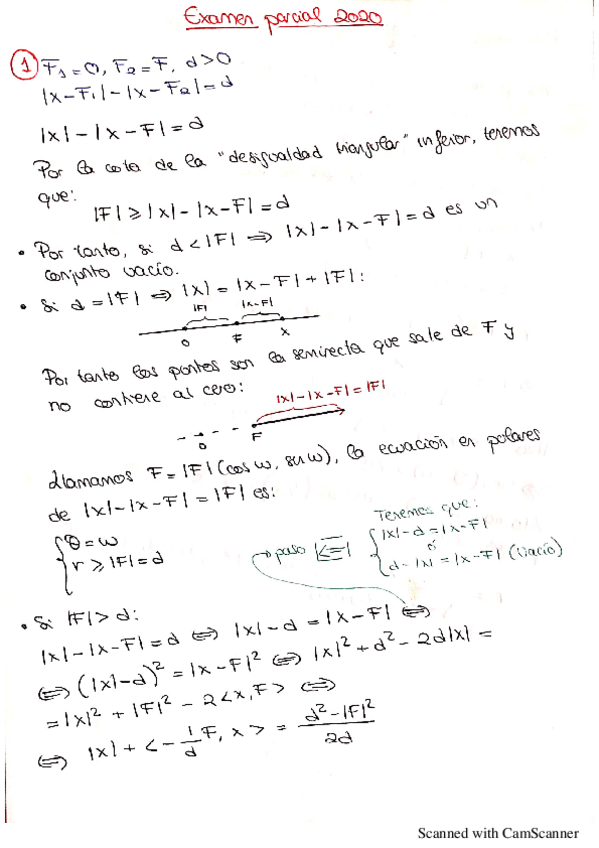 Examen parcial 2020
① F₁=0, F₂=F, d>0
|x-F₁|-|x-F₂|=d
|x|-|x-F|=d
Por la cota de la "desigualdad triangular" inferior, tenemos
que:
|F|⩾|x|-|x-F|=d
• Por tanto, si d<|F| ⟹ |x|-|x-F|=d es un
conjunto vacío.
• Si d=|F| ⟹ |x|=|x-F|+|F|:
|F| |x-F|
0 F x
Por tanto los puntos son la semirecta que sale de F y
no contiene al cero:
|x|-|x-F|=|F|
0 F
Llamamos F=|F|(cos w, sen w), la ecuación en polares
de |x|-|x-F|=|F| es:
{θ=w
r⩾|F|=d
Tenemos que:
→ paso ⟸ {|x|-d=|x-F|
ó
d-|x|=|x-F| (vacío)
• Si |F|>d:
|x|-|x-F|=d ⟺ |x|-d=|x-F| ⟺
⟺ (|x|-d)²=|x-F|² ⟺ |x|²+d²-2d|x|=
=|x|²+|F|²-2<x,F> ⟺
⟺ |x|+<-1/d F, x> = (d²-|F|²)/2d
Scanned with CamScanner